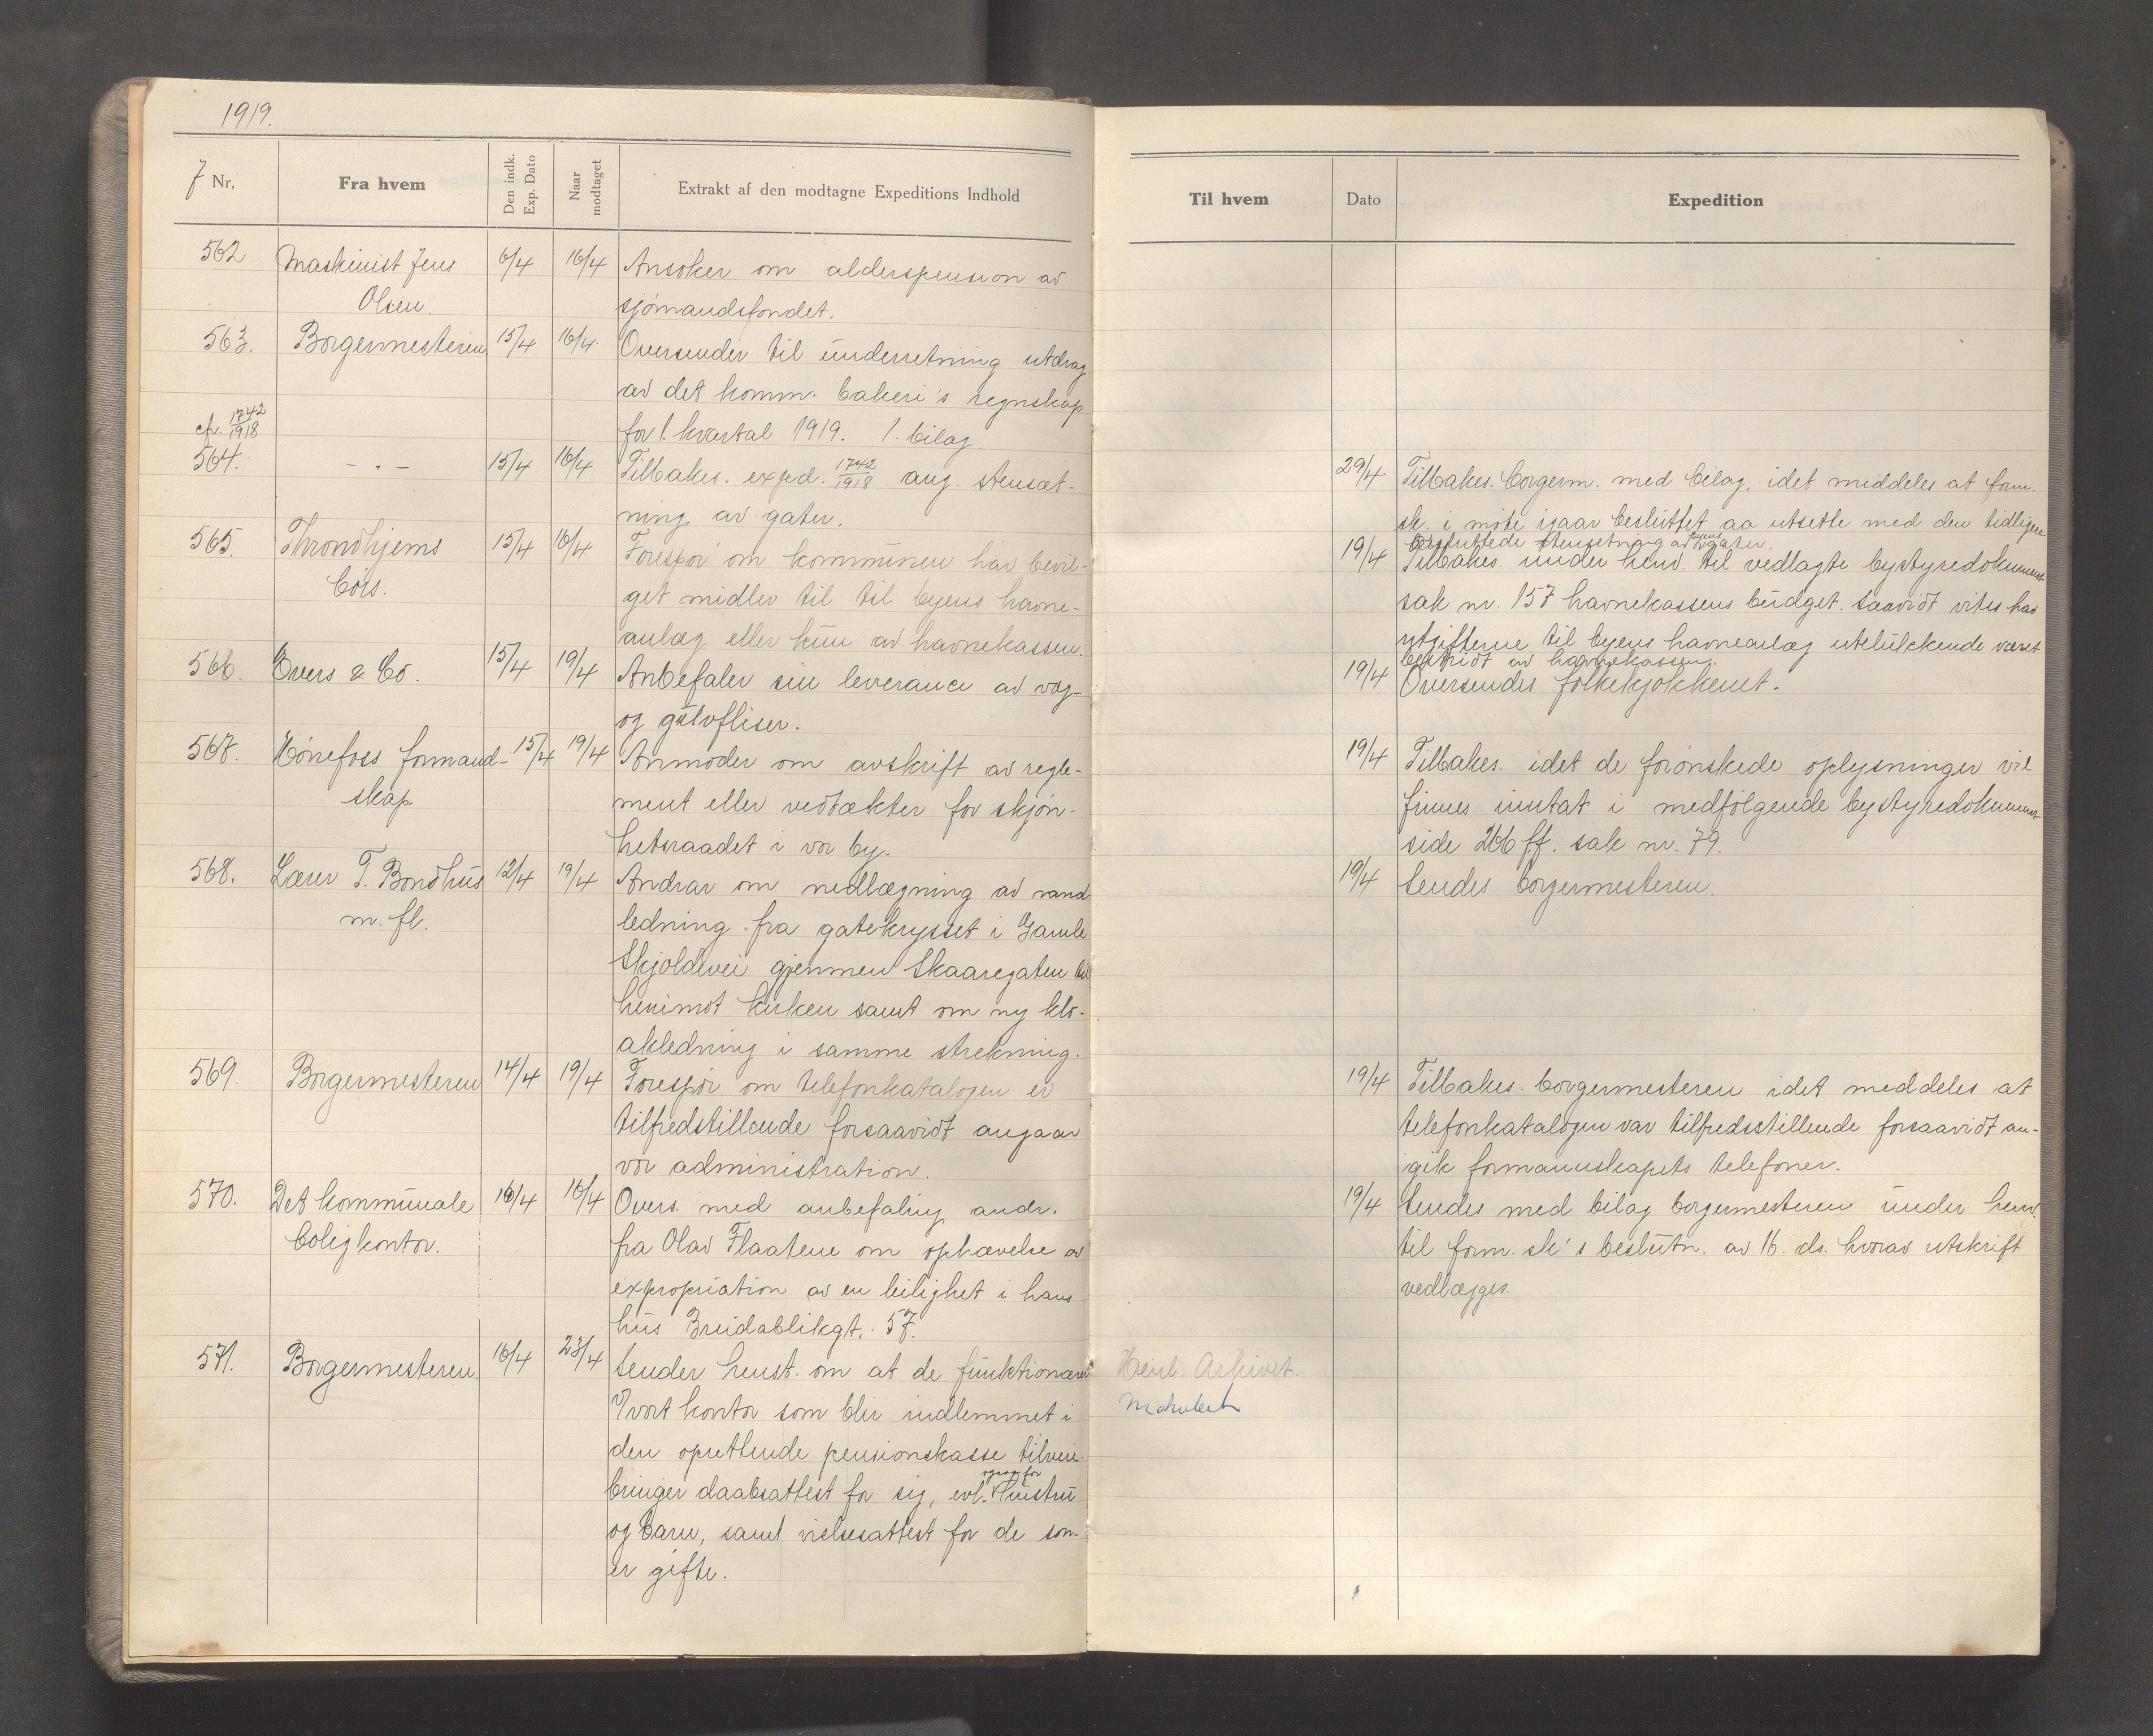 1919.
J Nr.
Fra hvem
Den indk. Exp. Dato
Naar modtaget
Extrakt af den modtagne Expeditions Indhold
Til hvem
Dato
Expedition
562 Maskinist Jens 6/4 16/4 Ansöker om alderspension av
Olsen. sjömandsfondet.
563. Borgermesteren 15/4 16/4 Oversender til underretning utdrag
av det komm. bakeri's regnskap
cfr. 1742/1918 for 1. kvartal 1919. 1. bilag.
564. - " - 15/4 16/4 Tilbakes. exped. 1742/1918 ang. stensæt-
ning av gater.
29/4 Tilbakes. borgerm. med bilag, idet middeles at form.
sk. i møte igaar besluttet aa utsette med den tidligere
besluttede stensetning av byens gater.
565. Throndhjems 15/4 16/4 Forespör om kommunen har bevil-
börs. get midler til til byens havne-
anlæg eller kun av havnekassen.
19/4 Tilbakes. under henv. til vedlagte bystyredokument
sak nr. 157 havnekassens budget. Saavidt vites har
utgifterne til byens havneanlæg utelukkende været
bestridt av havnekassen.
566. Evers & Co. 15/4 19/4 Anbefaler sin leverance av væg-
og gulvfliser.
19/4 Oversendes folkekjøkkenet.
567. Hönefoss formand- 15/4 19/4 Anmoder om avskrift av regle-
skap. ment eller vedtækter for skjön-
hetsraadet i vor by.
19/4 Tilbakes. idet de forönskede oplysninger vil
finnes inntat i medfölgende bystyredokument
side 266 ff. sak nr. 79.
568. Lærer T. Bondhus 12/4 19/4 Andrar om nedlægning av vand-
m. fl. ledning fra gatekrysset i Gamle
Skjoldevei gjennem Skaaregaten til
henimot kirken samt om ny klo-
akledning i samme strekning.
19/4 Sendes borgermesteren.
569. Borgermesteren 14/4 19/4 Forespör om telefonkatalogen er
tilfredstillende forsaavidt angaar
vor administration.
19/4 Tilbakes. borgermesteren idet meddeles at
telefonkatalogen var tilfredsstillende forsaavidt an-
gik formannskapets telefoner.
570. Det kommunale 16/4 16/4 Overs. med anbefaling andr.
boligkontor. fra Olav Flaatene om ophævelse av
expropriation av en leilighet i hans
hus Breidablikgt. 57.
19/4 Sendes med bilag borgermesteren under henv.
til form. sk's beslutn. av 16. ds. hvorav utskrift
vedlægges.
571. Borgermesteren 16/4 23/4 Sender henst. om at de funktionærer
v/vort kontor som blir indlemmet i
den oprettende pensionskasse tilveie-
bringer daabsattest for sig, evt. ogsaa for hustru
og barn, samt vielsesattest for de som
er gifte.
Henl. Arkivet.